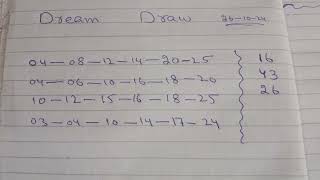 Dream Draw 26-10-24
04-08-12-14-20-25 16
04-06-10-16-18-26 43
10-12-15-16-18-25 26
03-04-10-14-17-24